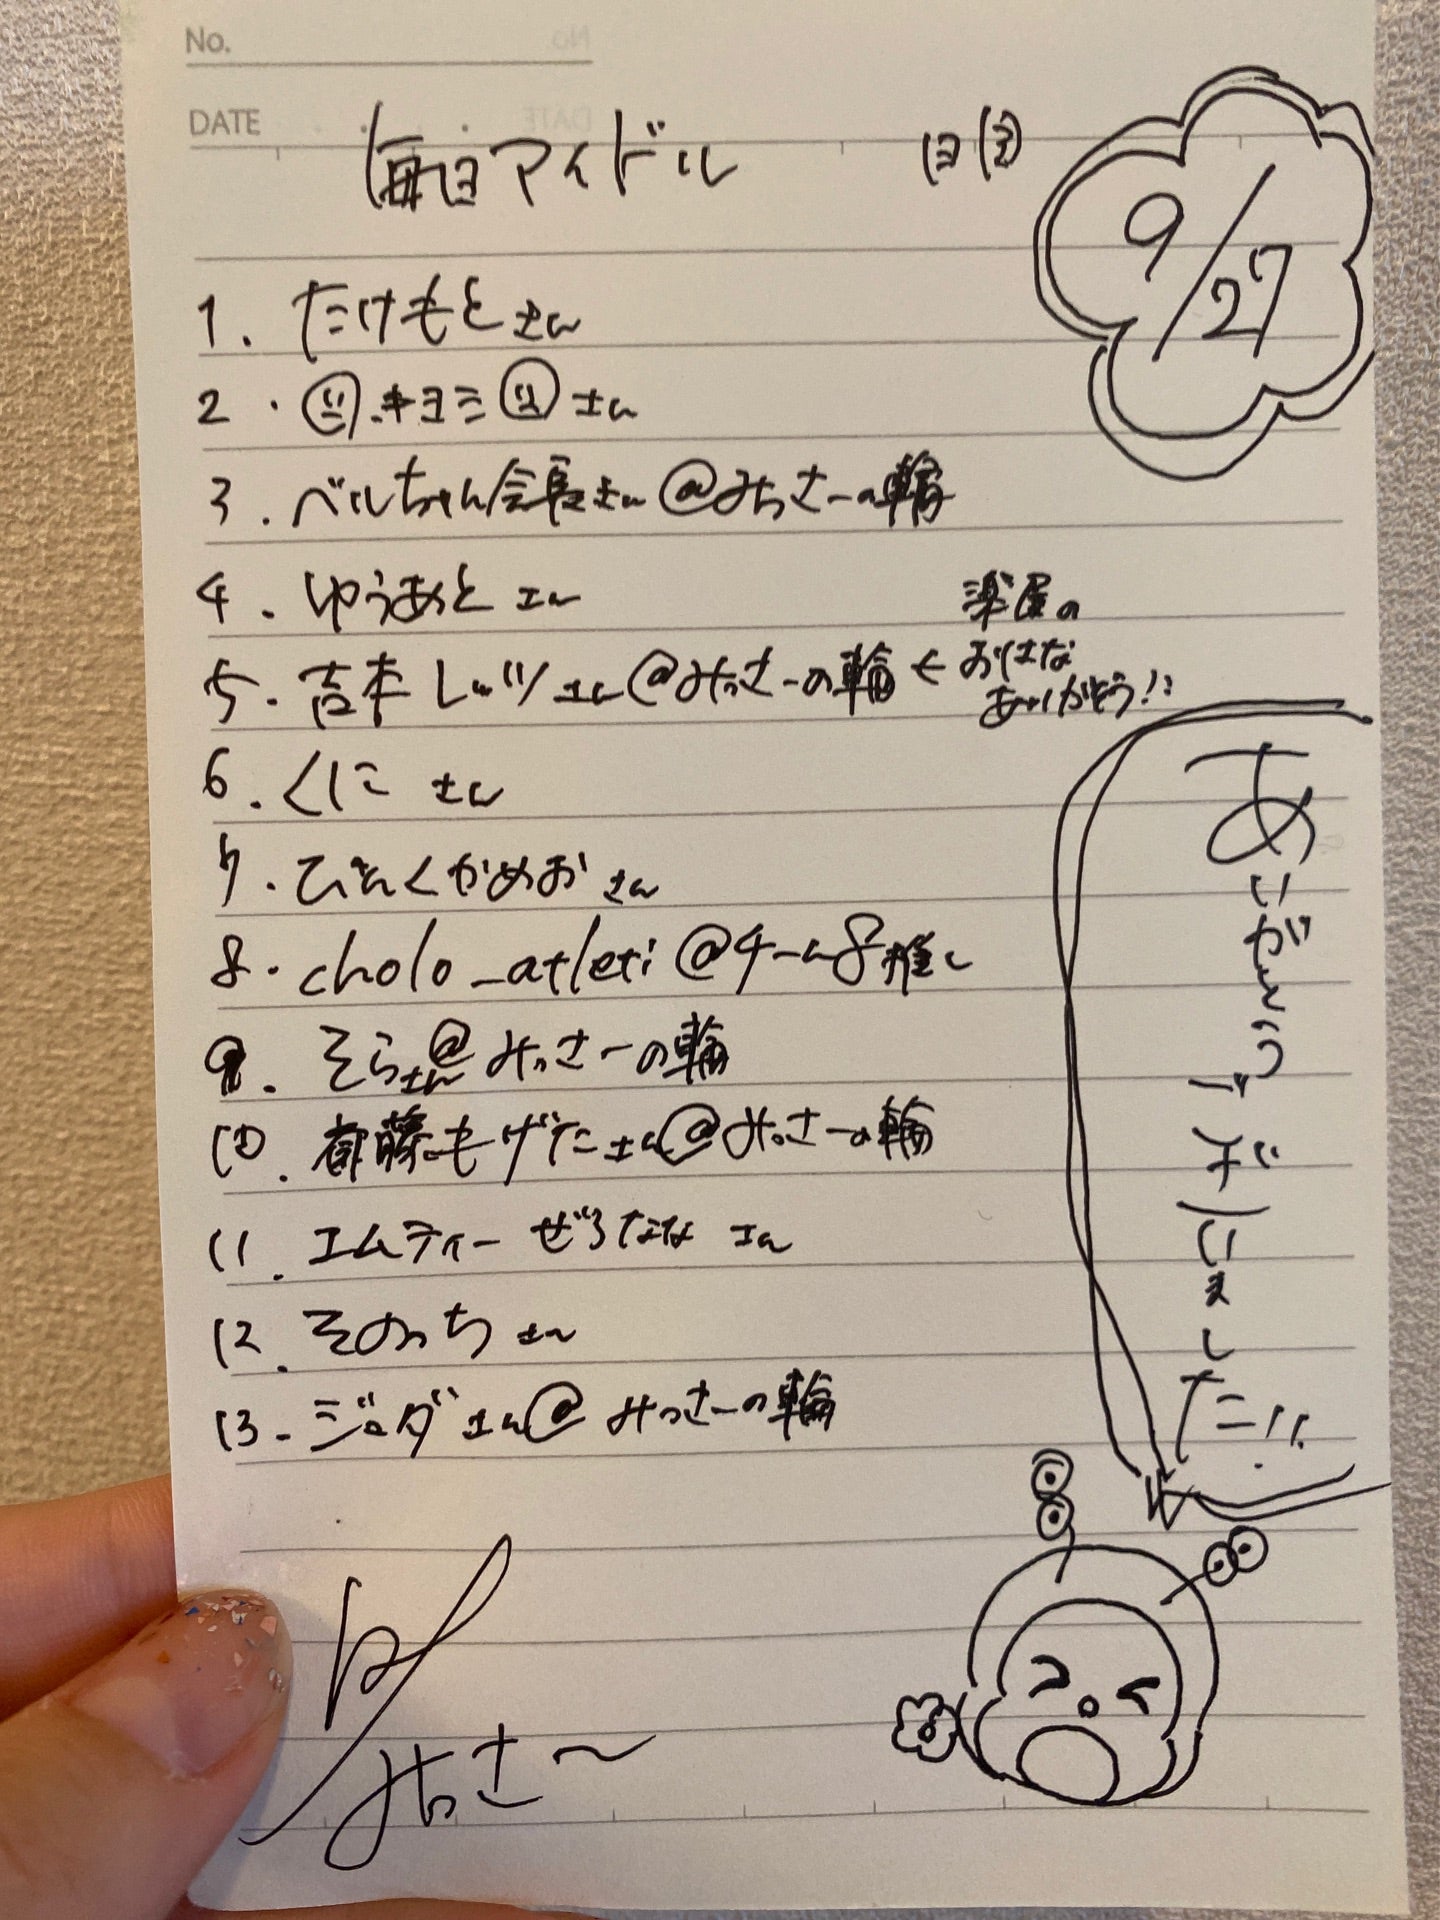 No.
DATE
毎日アイドル
9/27
1. たけもとさん
2. キヨミさん
3. ベルちゃん会長さん@みっさーの輪
4. ゆうあとさん
5. 吉本レッツさん@みっさーの輪 ← 楽屋の
おはな
ありがとう!!
6. くにさん
7. ひきんくかめおさん
8. cholo_atleti@チーム8推し
9. そらさん@みっさーの輪
10. 都藤もげたさん@みっさーの輪
11. エムティーぜろななさん
12. そのっちさん
13. ジュダさん@みっさーの輪
ありがとうございました!!
みっさー